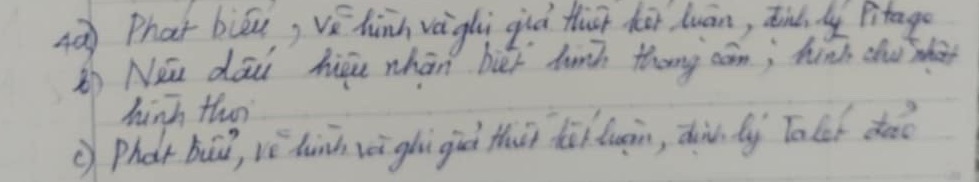 4a) Phát biểu, vẽ hình và ghi giả thiết kết luận, định lý Pitago
b) Nêu dấu hiệu nhận biết hình thang cân, hình chữ nhật
hình thoi
c) Phát biểu, vẽ hình và ghi giả thiết kết luận, định lý Talet đảo